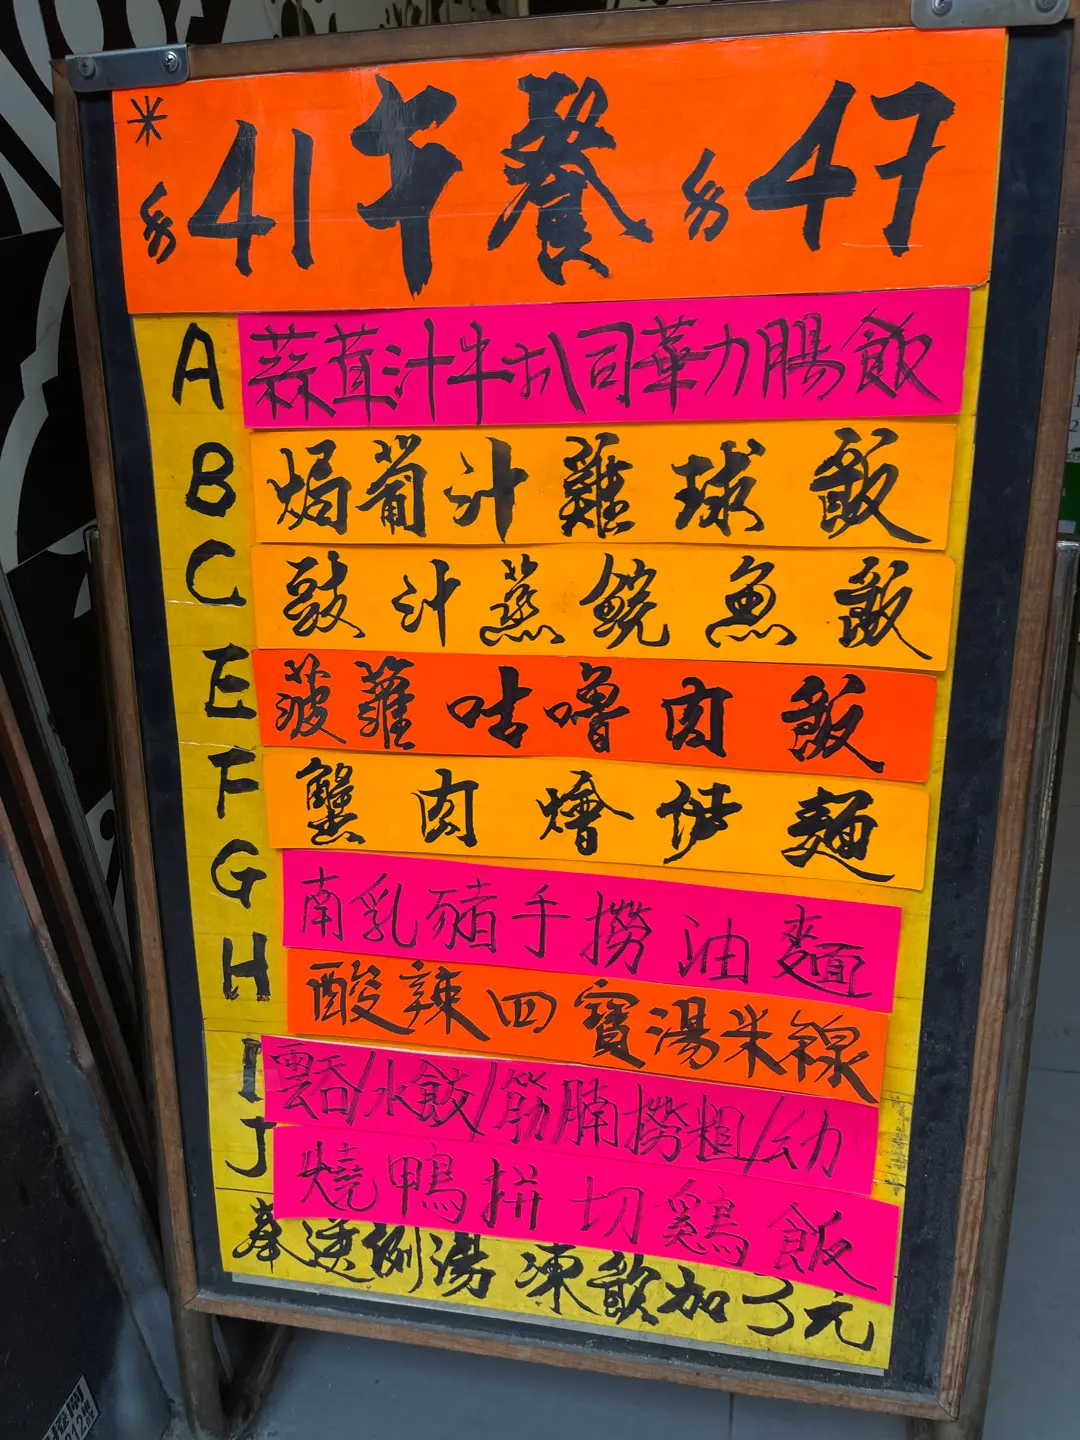 * $41 午餐 $47
A 蒜茸汁牛扒司華力腸飯
B 焗葡汁雞球飯
C 豉汁蒸鯇魚飯
E 菠蘿咕嚕肉飯
F 蟹肉燴伊麵
G 南乳豬手撈油麵
H 酸辣四寶湯米線
I 雲吞/水餃/筋腩撈粗/幼
J 燒鴨拼切鷄飯
奉送例湯 凍飲加3元